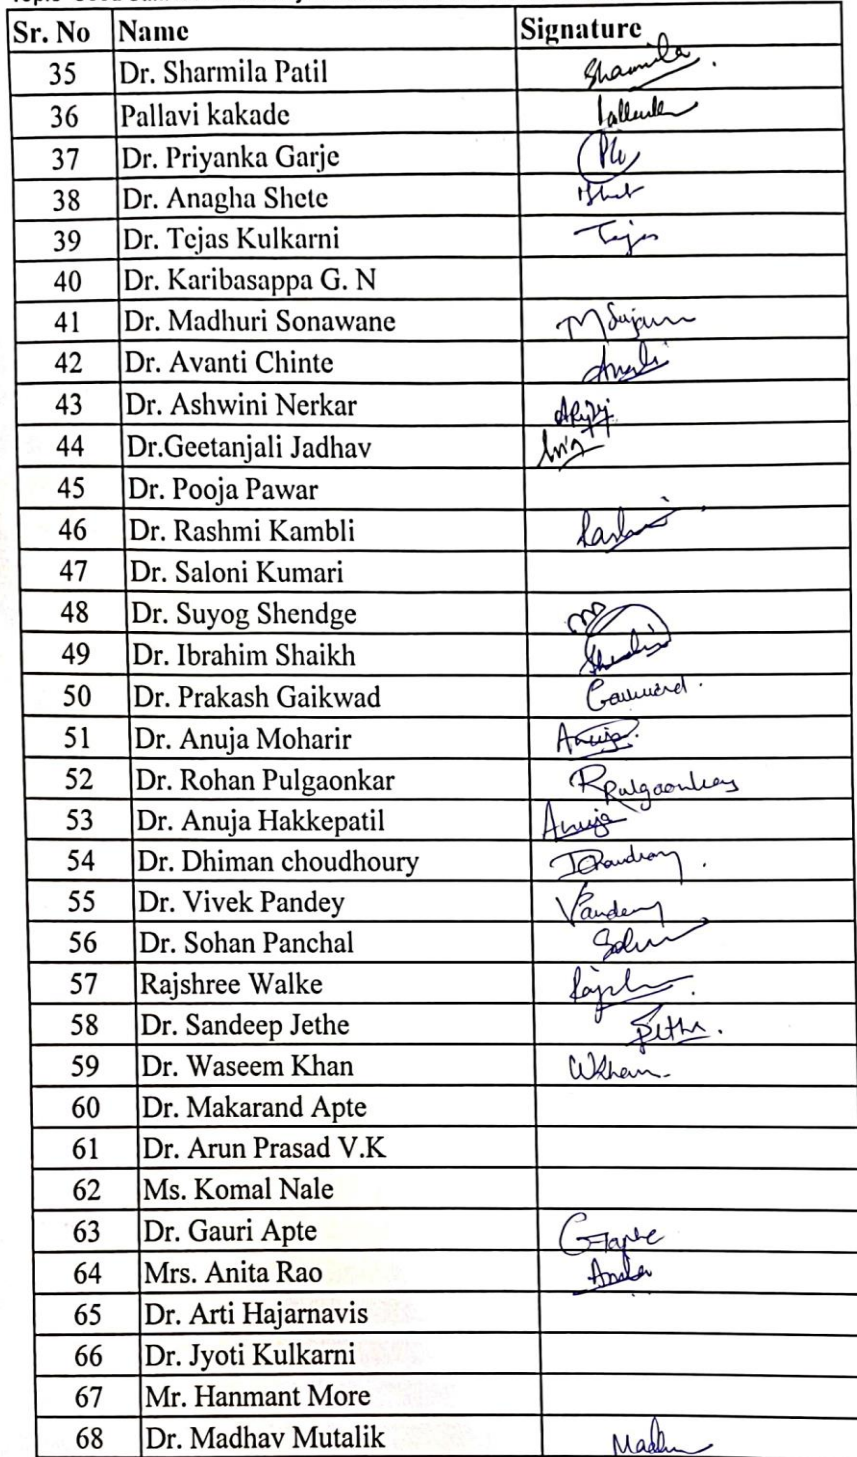 Sr. No Name Signature
35 Dr. Sharmila Patil Sharmila
36 Pallavi kakade
37 Dr. Priyanka Garje
38 Dr. Anagha Shete
39 Dr. Tejas Kulkarni Tejas
40 Dr. Karibasappa G. N
41 Dr. Madhuri Sonawane
42 Dr. Avanti Chinte
43 Dr. Ashwini Nerkar
44 Dr.Geetanjali Jadhav
45 Dr. Pooja Pawar
46 Dr. Rashmi Kambli
47 Dr. Saloni Kumari
48 Dr. Suyog Shendge
49 Dr. Ibrahim Shaikh
50 Dr. Prakash Gaikwad
51 Dr. Anuja Moharir Anuja
52 Dr. Rohan Pulgaonkar RPulgaonkar
53 Dr. Anuja Hakkepatil Anuja
54 Dr. Dhiman choudhoury
55 Dr. Vivek Pandey VPandey
56 Dr. Sohan Panchal
57 Rajshree Walke
58 Dr. Sandeep Jethe
59 Dr. Waseem Khan WKhan
60 Dr. Makarand Apte
61 Dr. Arun Prasad V.K
62 Ms. Komal Nale
63 Dr. Gauri Apte GApte
64 Mrs. Anita Rao
65 Dr. Arti Hajarnavis
66 Dr. Jyoti Kulkarni
67 Mr. Hanmant More
68 Dr. Madhav Mutalik